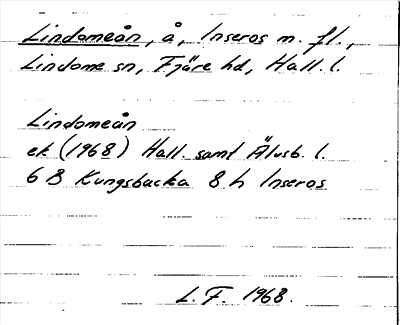 Lindomeån, å, Inseros m. fl.,
Lindome sn, Fjäre hd, Hall. l.
Lindomeån
ek (1968) Hall. samt Älvsb. l.
6 B Kungsbacka 8 h Inseros
L. F. 1968.